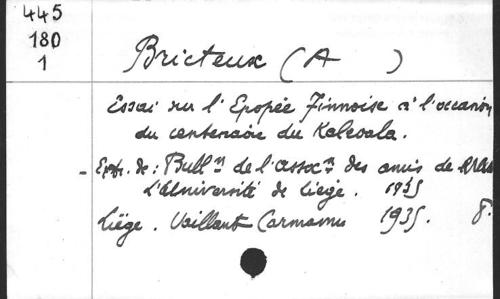 445
180
1
Bricteux (A )
Essai sur l'Epopée Finnoise à l'occasion
du centenaire du Kalevala.
- Extr. de: Bull.n de l'assoc.n des amis de
l'Université de Liège. 1935
Liége. Vaillant Carmanne 1935. 8.